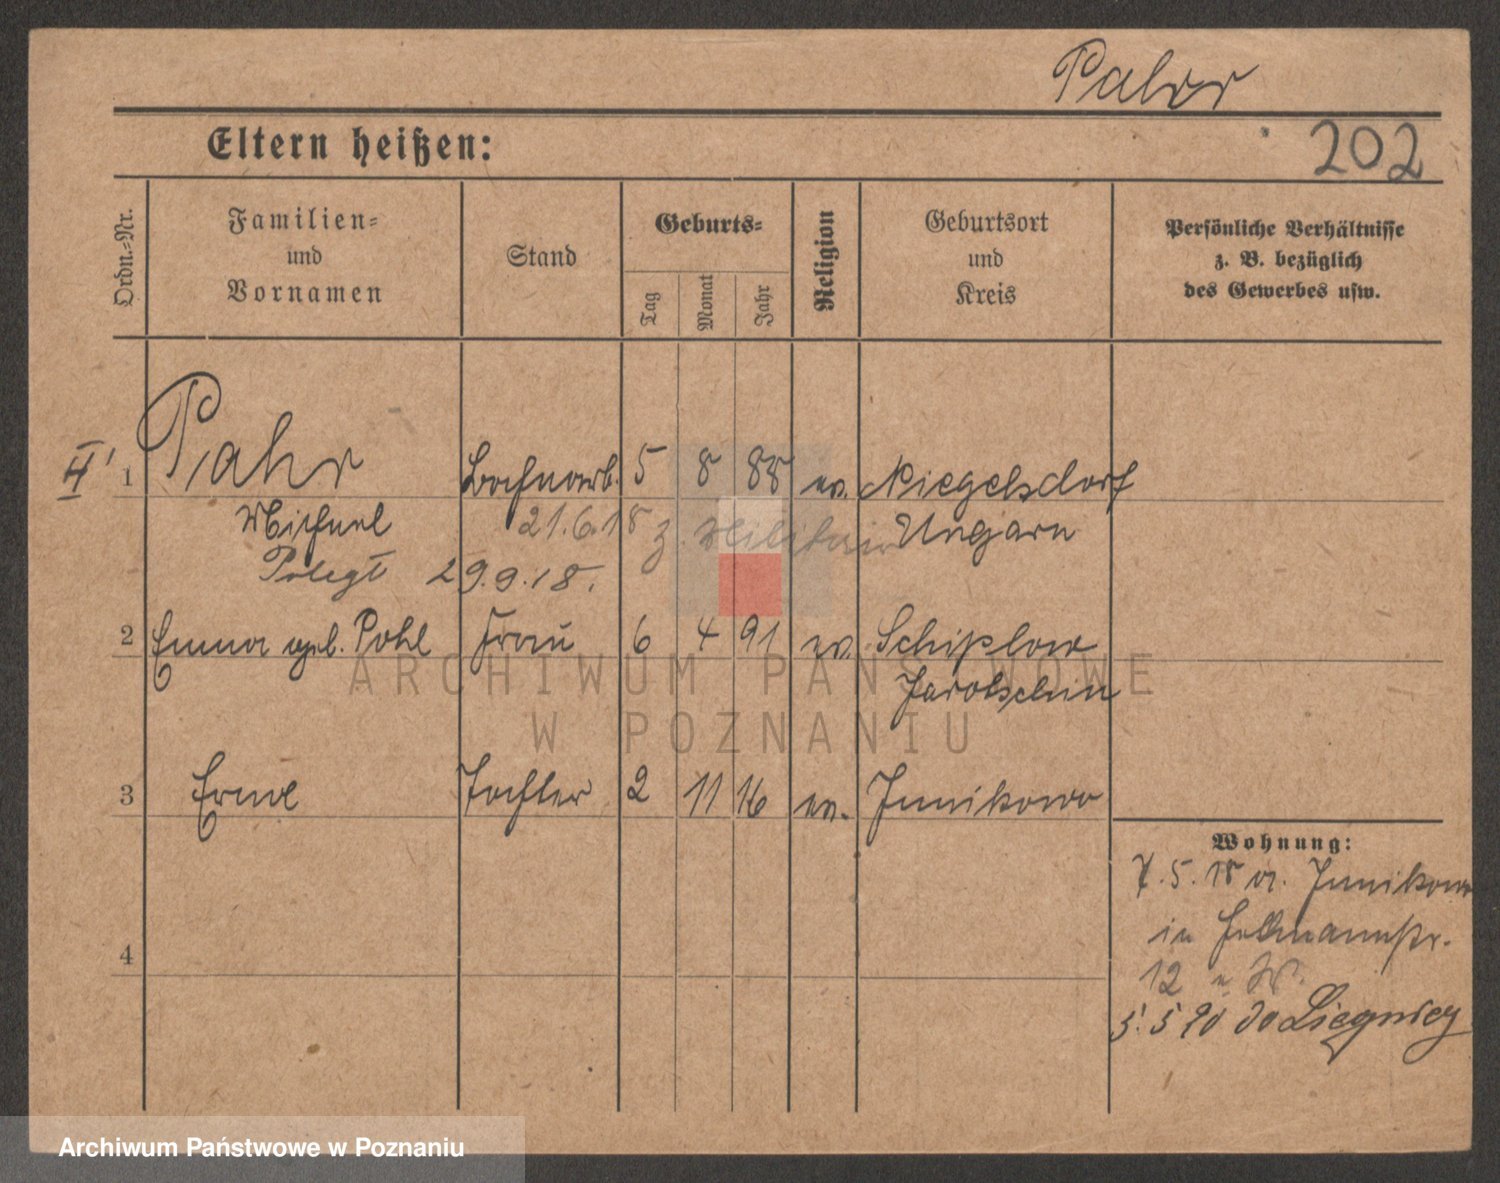 Pahr
Eltern heißen:
202
Ordn.=Nr.
Familien=
und
Vornamen
Stand
Geburts=
Tag
Monat
Jahr
Religion
Geburtsort
und
Kreis
Persönliche Verhältnisse
z. B. bezüglich
des Gewerbes usw.
1 Pahr 5 8 88 ev. Niegelsdorf
Michael 21.6.18 z. Militair Ungarn
29.9.18.
2 Emma geb. Pohl Frau 6 4 91 ev. Schiplow
Jarotschin
3 Erna Tochter 2 11 16 ev. Junikowo
Wohnung:
7.5.18 v. Junikowo
in
12
4
5.5 20 Liegnitz
ARCHIWUM PAŃSTWOWE
W POZNANIU
Archiwum Państwowe w Poznaniu